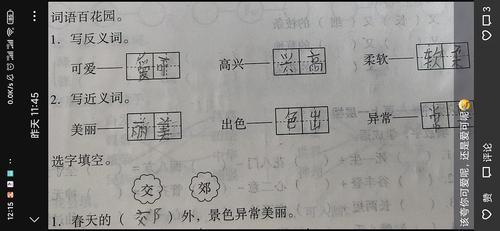 词语百花园。
1. 写反义词。
可爱——爱可 高兴——兴高 柔软——软柔
2. 写近义词。
美丽——丽美 出色——色出 异常——常
选字填空。
交 郊
1. 春天的（ ）外，景色异常美丽。
该夸你可爱呢，还是爱可呢
赞 评论 3
昨天 11:45
12:15
0.0K/s